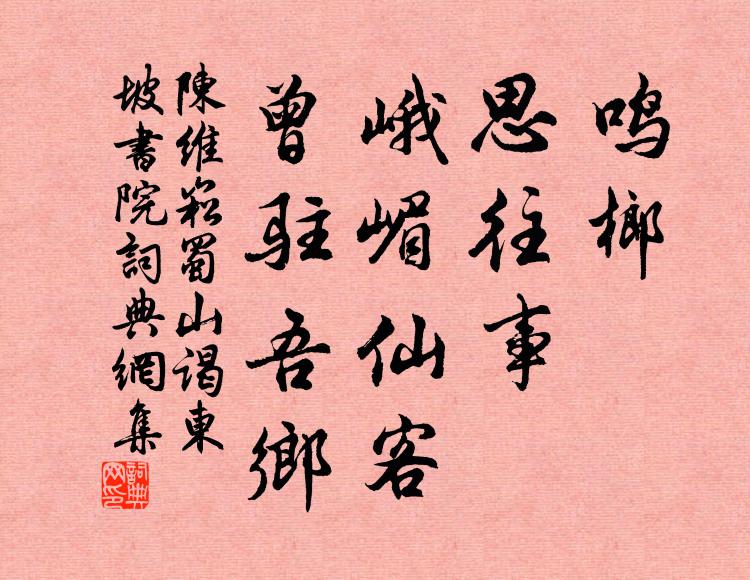 鸣榔
思往事
峨嵋仙客
曾駐吾鄉
陳維崧蜀山謁東
坡書院詞典網集
詞典网印